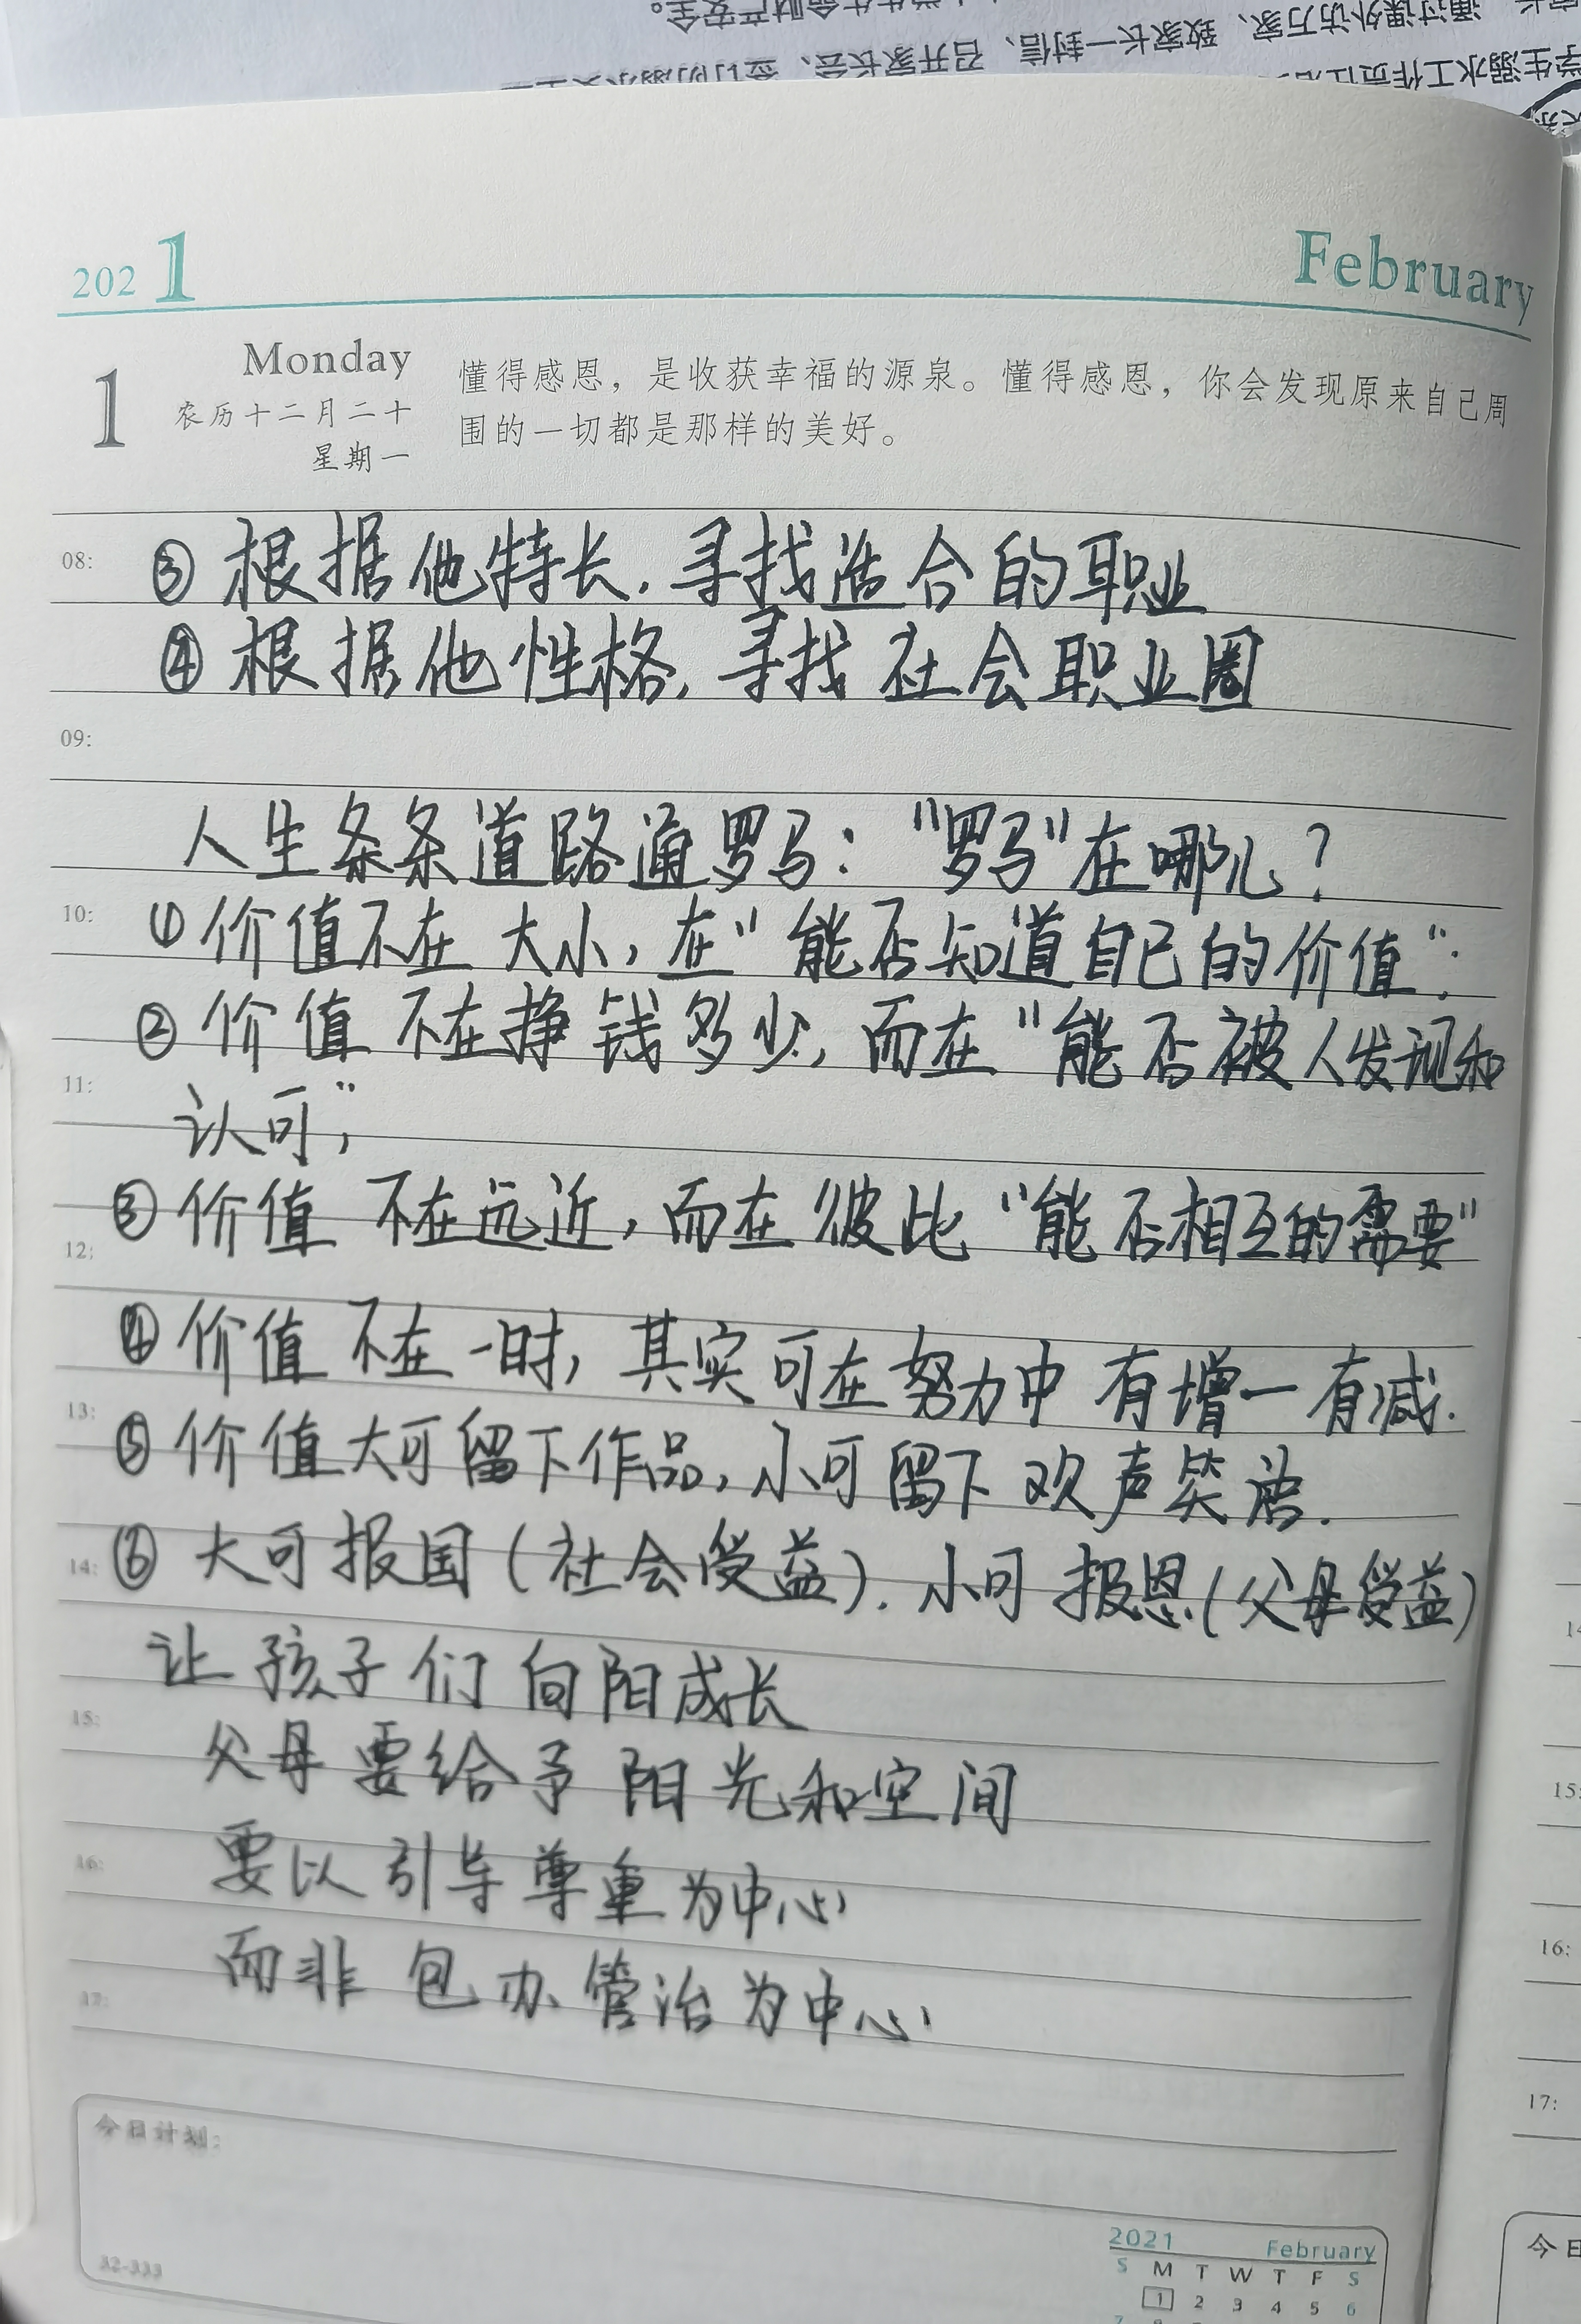 2021
February
1
Monday
农历十二月二十
星期一
懂得感恩，是收获幸福的源泉。懂得感恩，你会发现原来自己周
围的一切都是那样的美好。
08:
③根据他特长．寻找适合的职业
④根据他性格，寻找社会职业圈
09:
人生条条道路通罗马："罗马"在哪儿？
10:
①价值不在大小，在"能否知道自己的价值"；
②价值不在挣钱多少，而在"能否被人发现和
11:
认可"；
③价值不在远近，而在彼此"能否相互的需要"
12:
④价值不在一时，其实可在努力中有增一有减．
13:
⑤价值大可留下作品，小可留下欢声笑语．
14:
⑥大可报国（社会受益）．小可报恩（父母受益）
让孩子们向阳成长
15:
父母要给予阳光和空间
要以引导尊重为中心
16:
而非包办管治为中心
17:
今日计划：
32-333
2021 February
S M T W T F S
1 2 3 4 5 6
15:
16:
17:
今日